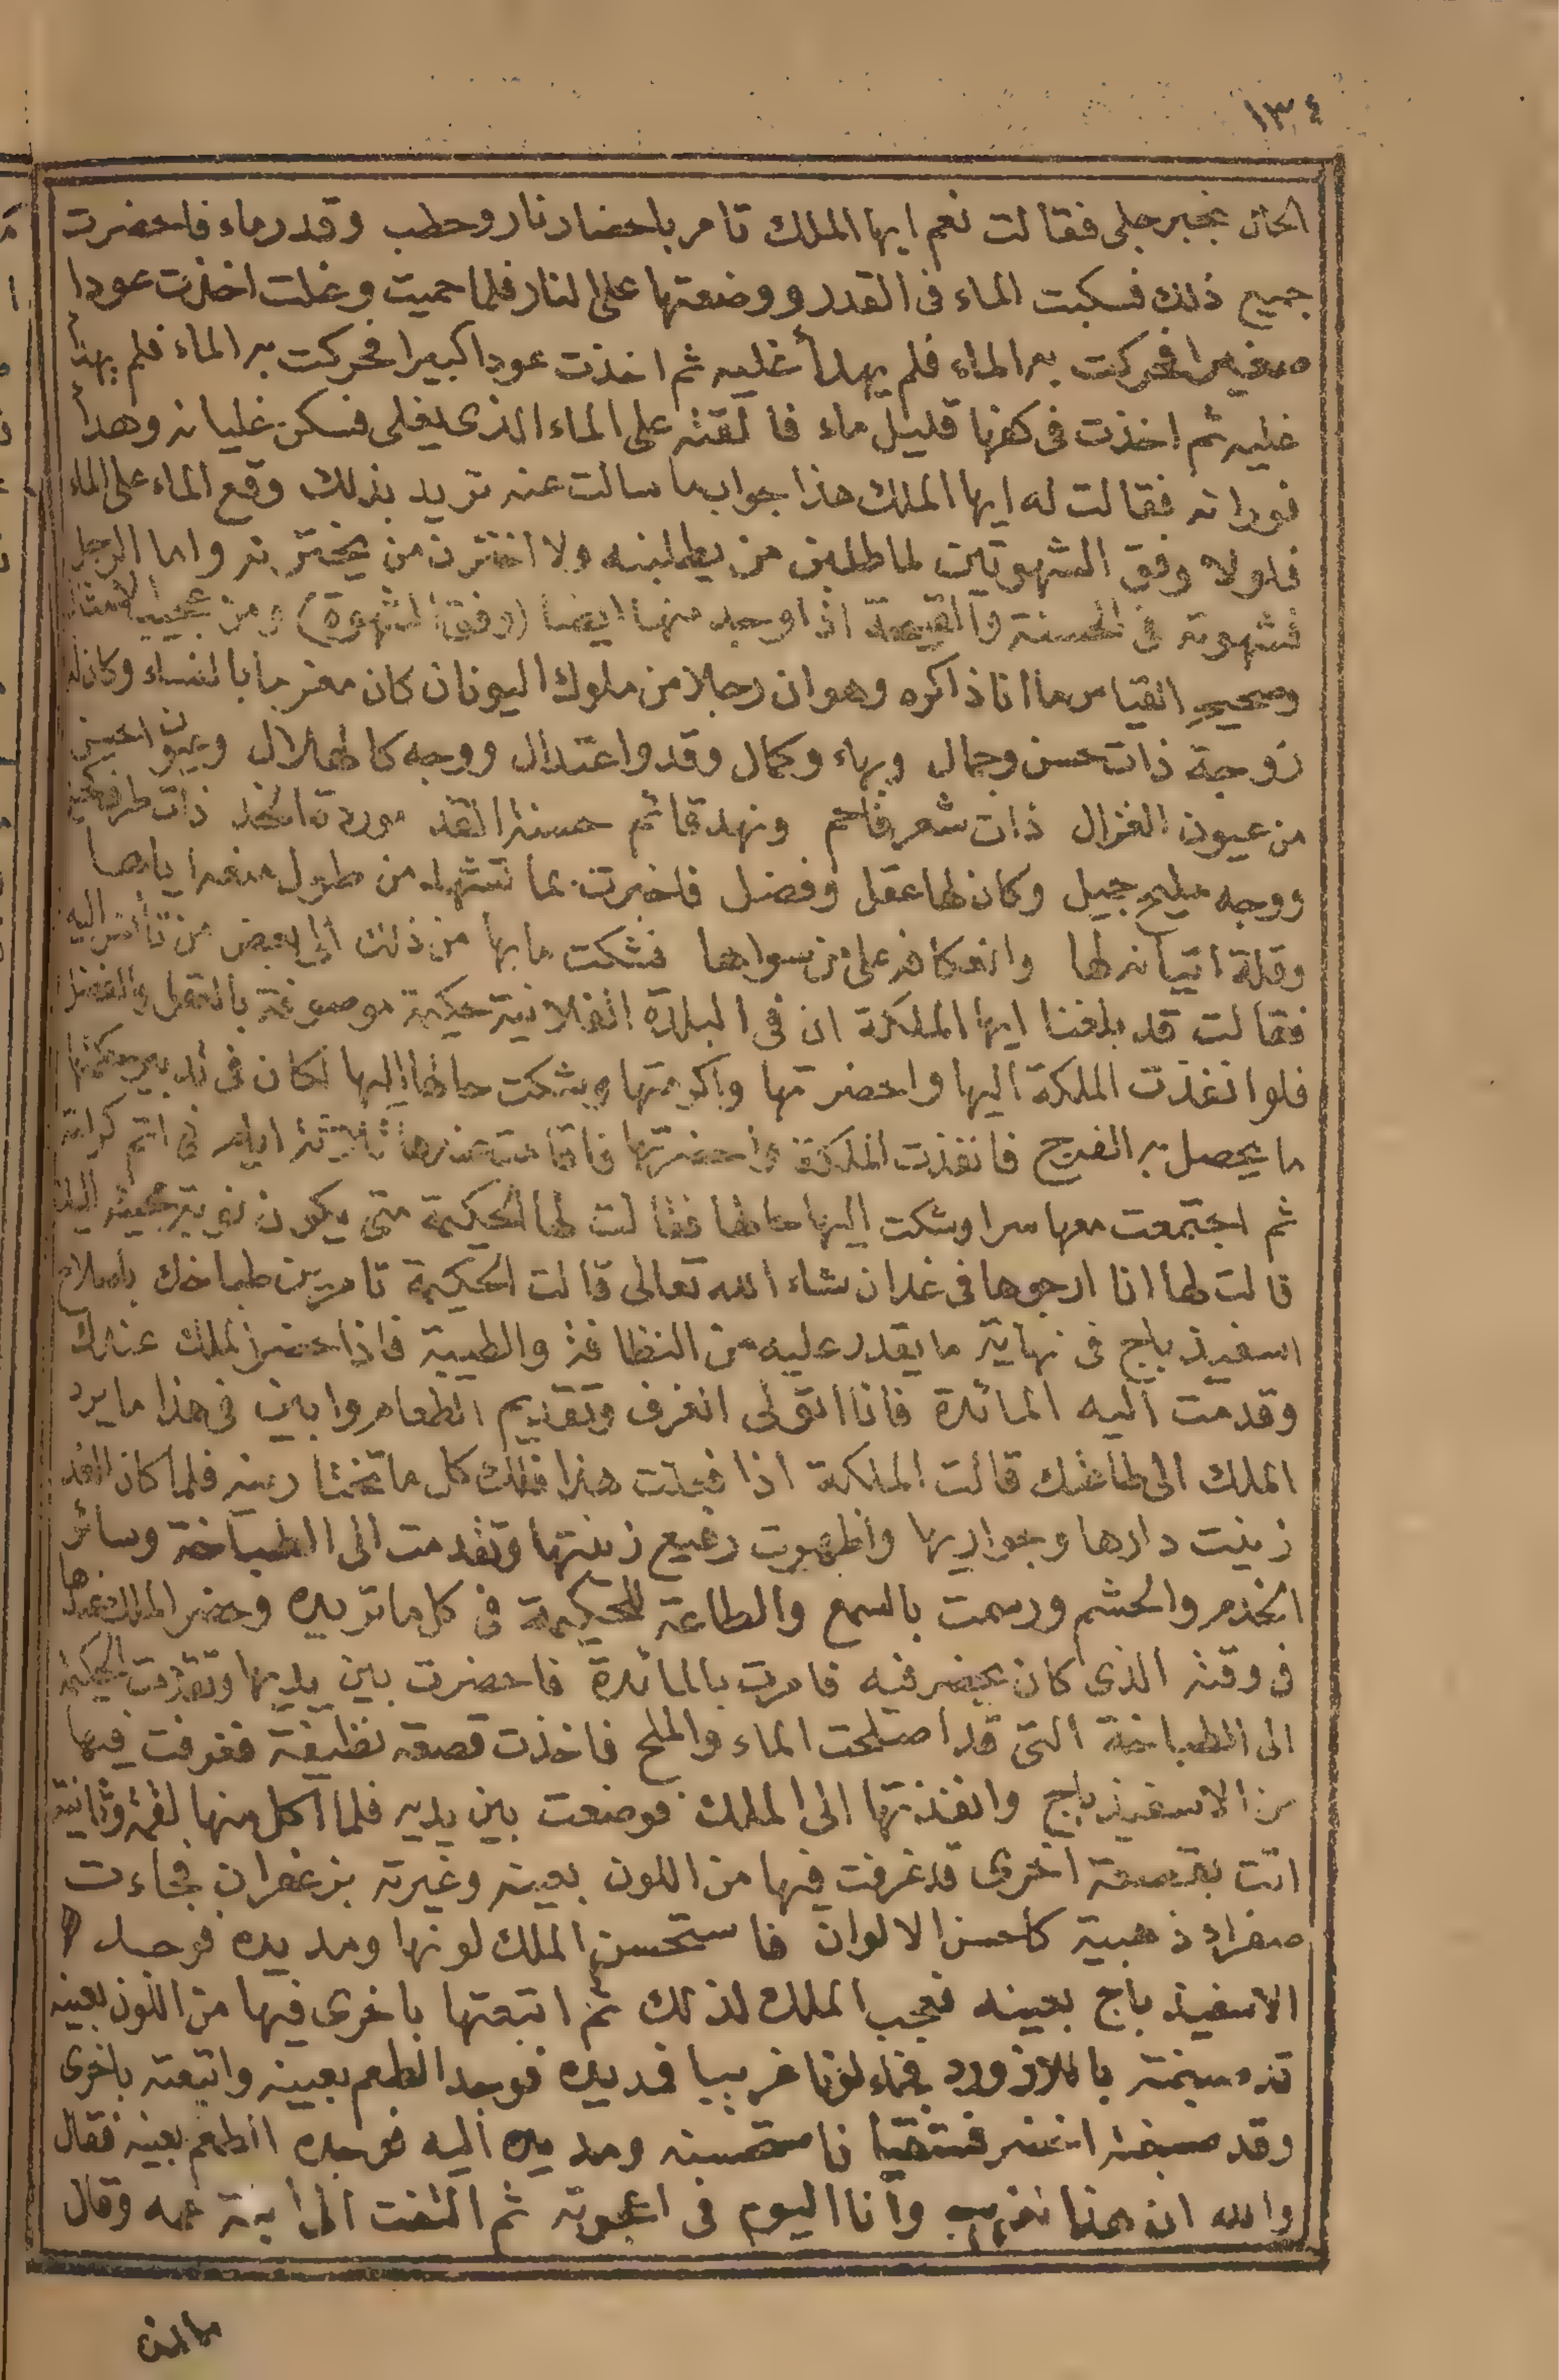 ١٣٤
الحال بخبر جلى فقالت نعم ايها الملك تامر باحضار نار وحطب وقدر ماء فاحضرت
جميع ذلك فسكبت الماء فى القدر ووضعتها على النار فلما حميت وغلت اخذت عودا
صغيرا فحركت به الماء فلم يهدأ غليه ثم اخذت عودا كبيرا فحركت به الماء فلم يهدأ
غليه ثم اخذت فى كفها قليل ماء فالقته على الماء الذى يغلى فسكن غليانه وهدأ
فورانه فقالت له ايها الملك هذا جواب ما سالت عنه تريد بذلك وقع الماء على الماء
فلولا وفق الشهوتين لما طلبن من يطلبنه ولا اخترن من يخترنه واما الرجل
فشهوته فى الحسنة والقبيحة اذا وجد منها ايضا (وفق الشهوة) ومن عجيب الامثال
وصحيح القياس ما انا ذاكره وهو ان رجلا من ملوك اليونان كان مغرما بالنساء وكان له
زوجة ذات حسن وجمال وبهاء وكمال وقد واعتدال ووجه كالهلال وعيون احسن
من عيون الغزال ذات شعر فاحم ونهد قائم حسنة القد موردة الخد ذات طرف كحيل
ووجه مليح جميل وكان لها عقل وفضل فاخبرت بما تشهد من طول منعه اياها
وقلة اتيانه لها وانعكافه على من سواها فشكت ما بها من ذلك الى بعض من تأنس اليه
فقالت قد بلغنا ايها الملكة ان فى البلدة الفلانية حكيمة موصوفة بالعقل والفضل
فلو انفذت الملكة اليها واحضرتها واكرمتها وشكت حالها اليها لكان فى تدبير حكمتها
ما يحصل به الفرج فانفذت الملكة واحضرتها فاقامت عندها ثلاثة ايام فى اتم كرامة
ثم اجتمعت معها سرا وشكت اليها حالها فقالت لها الحكيمة متى يكون نوبة مجيئه اليك
قالت لها انا ارجوها فى غد ان شاء الله تعالى قالت الحكيمة تامرين طباخك باصلاح
اسفيذباج فى نهاية ما يقدر عليه من النظافة والطيبة فاذا حضر الملك عندك
وقدمت اليه المائدة فانا اتولى الغرف وتقديم الطعام وابين فى هذا ما يرد
الملك الى طاعتك قالت الملكة اذا فعلت هذا فلك كل ما تختارينه فلما كان الغد
زينت دارها وجواريها واظهرت رفيع زينتها وتقدمت الى الطباخة وسائر
الخدم والحشم ورسمت بالسمع والطاعة للحكيمة فى كل ما تريده وحضر الملك عندها
فى وقته الذى كان يحضر فيه فامرت بالمائدة فاحضرت بين يديها وتقدمت الحكيمة
الى الطباخة التى قد اصلحت الماء والملح فاخذت قصعة نظيفة فغرفت فيها
من الاسفيذباج وانفذتها الى الملك فوضعت بين يديه فلما اكل منها لقمة وثانية
اتت بقصعة اخرى قد غرفت فيها من اللون بعينه وغيرته بزعفران فجاءت
صفراء ذهبية كاحسن الالوان فاستحسن الملك لونها ومد يده فوجد
الاسفيذباج بعينه فعجب الملك لذلك ثم اتبعتها باخرى فيها من اللون بعينه
قد صبغته باللازورد فجاء لونا غريبا فمد يده فوجد الطعم بعينه واتبعته باخرى
وقد صبغته اخضر فستقيا فاستحسنه ومد يده اليه فوجده الطعم بعينه فقال
والله ان هذا لغريب وانا اليوم فى اعجوبة ثم التفت الى ابنة عمه وقال